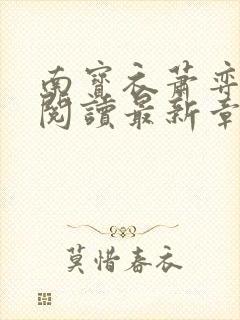 南寶衣蕭弈
閱讀最新章
莫惜春衣